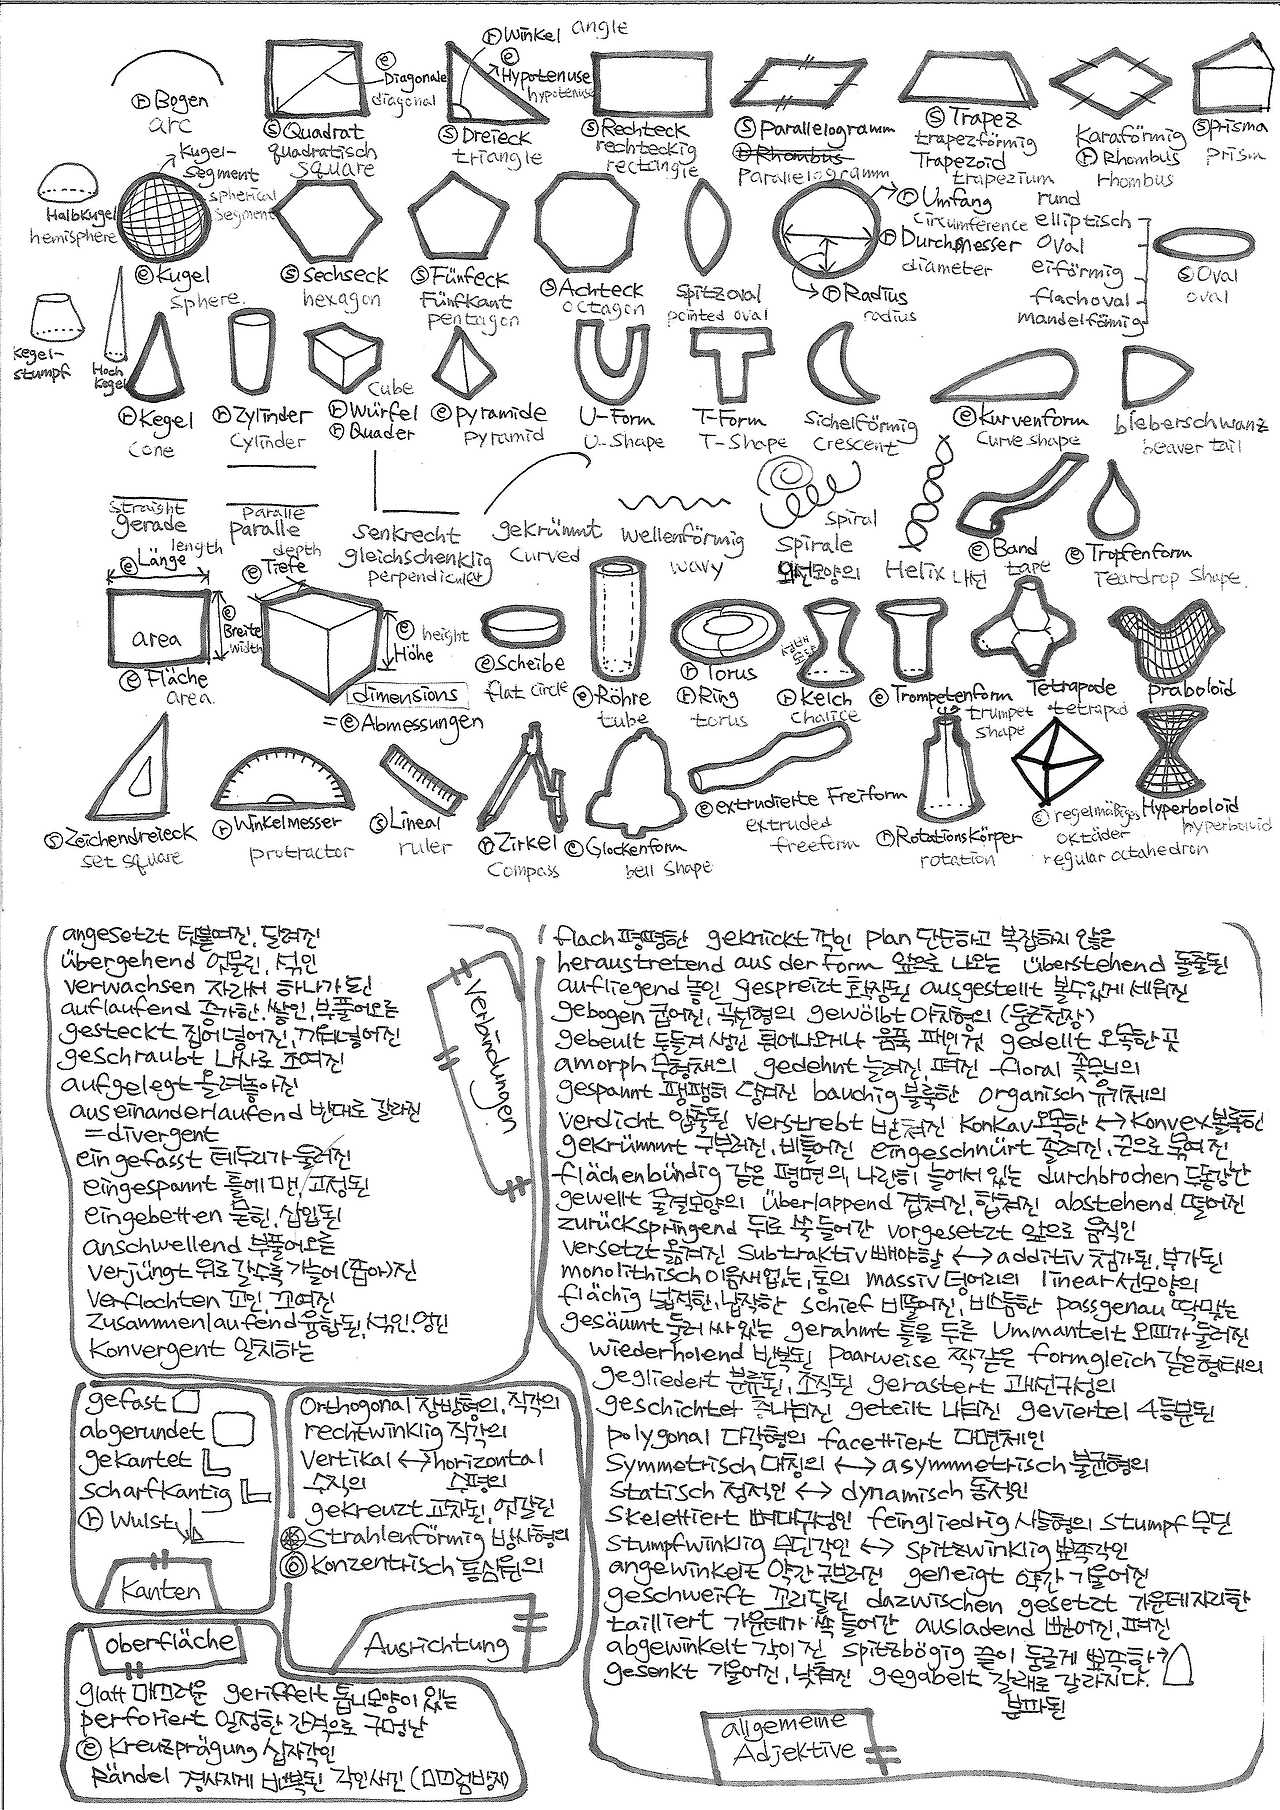 ⓡ Winkel angle
ⓔ Diagonale
diagonal
ⓔ Hypotenuse
hypotenuse
ⓡ Bogen
arc
ⓢ Quadrat
quadratisch
square
ⓢ Dreieck
triangle
ⓢ Rechteck
rechteckig
rectangle
ⓢ Parallelogramm
ⓡ Rhombus
Parallelogramm
ⓢ Trapez
trapezförmig
Trapezoid
trapezium
Karaförmig
ⓡ Rhombus
rhombus
ⓢ prisma
prism
Halbkugel
hemisphere
Kugel-
segment
spherical
segment
ⓔ Kugel
sphere
ⓢ Sechseck
hexagon
ⓢ Fünfeck
Fünfkant
pentagon
ⓢ Achteck
octagon
Spitzoval
pointed oval
ⓡ Umfang
circumference
ⓡ Durchmesser
diameter
ⓡ Radius
radius
rund
elliptisch
oval
eiförmig
flachoval
mandelförmig
ⓢ Oval
oval
Kegel-
stumpf
Hoch
Kegel
ⓡ Kegel
cone
ⓡ Zylinder
Cylinder
cube
ⓡ Würfel
ⓡ Quader
ⓔ pyramide
pyramid
U-Form
U-Shape
T-Form
T-Shape
Sichelförmig
Crescent
ⓔ Kurvenform
Curve shape
bieberschwanz
beaver tail
straight
gerade
paralle
paralle
senkrecht
gleichschenklig
perpendicular
gekrümmt
curved
wellenförmig
wavy
spiral
Spirale
와선모양의
Helix 나선
ⓔ Band
tape
ⓔ Tropfenform
Teardrop shape
length
ⓔ Länge
area
ⓔ Breite
width
ⓔ Fläche
area
depth
ⓔ Tiefe
ⓔ height
Höhe
dimensions
= ⓔ Abmessungen
ⓔ Scheibe
flat circle
ⓔ Röhre
tube
ⓡ Torus
ⓡ Ring
torus
ⓡ Kelch
chalice
ⓔ Trompetenform
trumpet
shape
Tetrapode
tetrapod
praboloid
ⓢ Zeichendreieck
set square
ⓡ Winkelmesser
protractor
ⓢ Lineal
ruler
ⓡ Zirkel
Compass
ⓔ Glockenform
bell shape
ⓔ extrudierte Freiform
extruded
freeform
ⓡ Rotationskörper
rotation
ⓢ regelmäßiges
oktäder
regular octahedron
Hyperboloid
hyperboloid
angesetzt 덧붙여진, 달려진
übergehend 맞물린, 섞인
verwachsen 자라서 하나가 된
auflaufend 증가한, 쌓인, 부풀어오른
gesteckt 집어넣어진, 끼워넣어진
geschraubt 나사로 조여진
aufgelegt 올려놓아진
auseinanderlaufend 반대로 갈라진
= divergent
eingefasst 테두리가 둘러진
eingespannt 틀에 맨, 고정된
eingebetten 묻힌, 삽입된
anschwellend 부풀어오른
verjüngt 위로 갈수록 가늘어(좁아)진
verflochten 꼬인, 꼬여진
zusammenlaufend 융합된, 섞인, 엉긴
Konvergent 일치하는
Verbindungen
gefast
abgerundet
gekantet
scharfkantig
ⓡ Wulst
Kanten
Orthogonal 장방형의, 직각의
rechtwinklig 직각의
Vertikal ↔ horizontal
수직의 수평의
gekreuzt 교차된, 엇갈린
Strahlenförmig 방사형의
Konzentrisch 동심원의
Ausrichtung
Oberfläche
glatt 매끄러운 geriffelt 톱니모양이 있는
perforiert 일정한 간격으로 구멍난
ⓔ Kreuzprägung 십자각인
Rändel 경사지게 반복된 각인새긴 (미끄럼방지)
flach 평평한 geknickt 꺾인 plan 단순하고 복잡하지 않은
heraustretend aus der Form 앞으로 나오는 überstehend 돌출된
aufliegend 놓인 gespreizt 확장된 ausgestellt 볼수있게 세워진
gebogen 굽어진, 곡선형의 gewölbt 아치형의 (둥근천장)
gebeult 두들겨 생긴 튀어나오거나 움푹 패인것 gedellt 오목한 곳
amorph 무형체의 gedehnt 늘려진, 펴진 floral 꽃무늬의
gespannt 팽팽히 당겨진 bauchig 불룩한 organisch 유기체의
verdicht 압축된 verstrebt 받쳐진 Konkav 오목한 ↔ Konvex 볼록한
gekrümmt 구부러진, 비틀어진 eingeschnürt 졸려진, 끈으로 묶여진
flächenbündig 같은 평면의, 나란히 늘어서 있는 durchbrochen
gewellt 물결모양의 überlappend 접쳐진, 합쳐진 abstehend 떨어진
zurückspringend 뒤로 쑥 들어간 vorgesetzt 앞으로 움직인
versetzt 옮겨진 Subtraktiv 빼야할 ↔ additiv 첨가된, 부가된
monolithisch 이음새없는, 통의 massiv 덩어리의 linear 선모양의
flächig 넓적한, 납작한 schief 비뚤어진, 비스듬한 passgenau 딱맞는
gesäumt 둘러싸있는 gerahmt 틀을 두른 Ummantelt 외피가 둘러진
wiederholend 반복된 Paarweise 짝같은 formgleich 같은형태의
gegliedert 분류된, 조직된 gerastert 괘선구성의
geschichtet 층나눠진 geteilt 나눠진 geviertel 4등분된
polygonal 다각형의 facettiert 다면체인
Symmetrisch 대칭의 ↔ asymmetrisch 불균형의
Statisch 정적인 ↔ dynamisch 동적인
Skelettiert 뼈대구성인 feingliedrig 사들형의 stumpf 무딘
Stumpfwinklig 무딘각인 ↔ Spitzwinklig 뾰쪽각인
angewinkelt 약간 구부러진 geneigt 약간 기울어진
geschweift 꼬리달린 dazwischen gesetzt 가운데자리한
tailliert 가운데가 쏙 들어간 ausladend 뻗어진, 펴진
abgewinkelt 각이 진 Spitzbögig 끝이 둥글게 뾰쪽한?
gesenkt 기울어진, 낮춰진 gegabelt 갈래로 갈라지다.
분파된
allgemeine
Adjektive